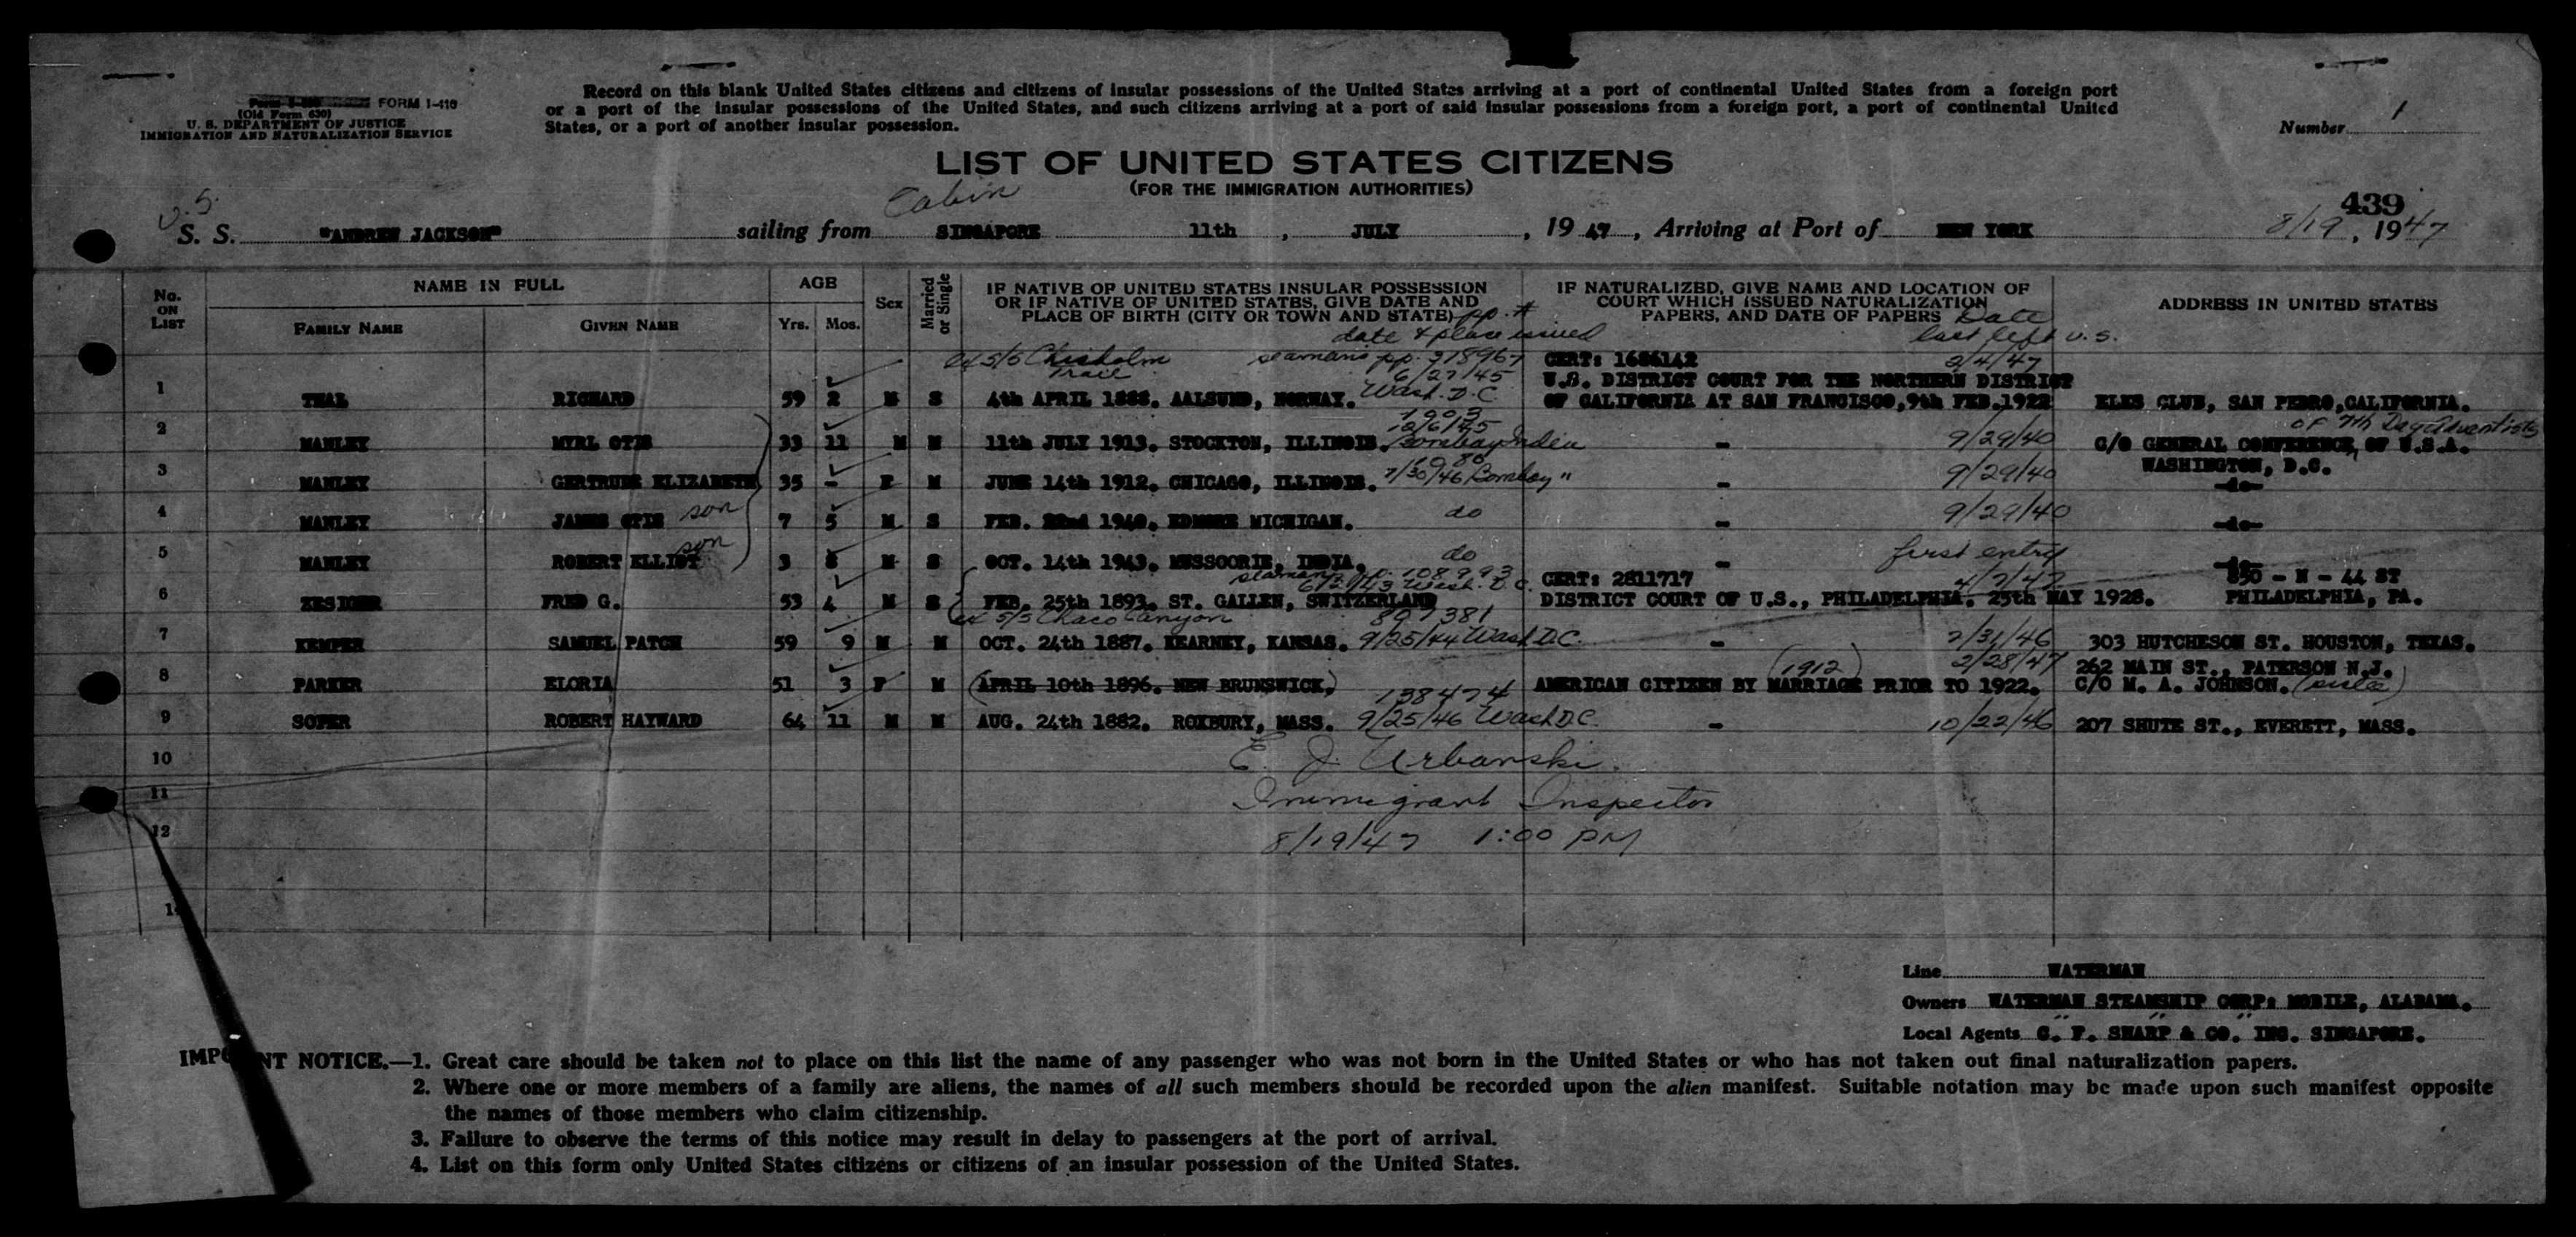 FORM I-418
(Old Form 630)
U. S. DEPARTMENT OF JUSTICE
IMMIGRATION AND NATURALIZATION SERVICE
Record on this blank United States citizens and citizens of insular possessions of the United States arriving at a port of continental United States from a foreign port
or a port of the insular possessions of the United States, and such citizens arriving at a port of said insular possessions from a foreign port, a port of continental United
States, or a port of another insular possession.
Number 1
LIST OF UNITED STATES CITIZENS
(FOR THE IMMIGRATION AUTHORITIES)
Cabin
439
U.S.
S. S. "ANDREW JACKSON" sailing from SINGAPORE 11th, JULY, 19 47, Arriving at Port of NEW YORK 8/19, 1947
No. ON LIST
NAME IN FULL
FAMILY NAME
GIVEN NAME
AGE
Yrs.
Mos.
Sex
Married or Single
IF NATIVE OF UNITED STATES INSULAR POSSESSION
OR IF NATIVE OF UNITED STATES, GIVE DATE AND
PLACE OF BIRTH (CITY OR TOWN AND STATE) pp. #
date & place issued
IF NATURALIZED, GIVE NAME AND LOCATION OF
COURT WHICH ISSUED NATURALIZATION
PAPERS, AND DATE OF PAPERS Date
last left U.S.
ADDRESS IN UNITED STATES
ex S/S Chisholm Trail seamans pp. 318967 CERT: 1686142 2/4/47
6/27/45 U.S. DISTRICT COURT FOR THE NORTHERN DISTRICT
1 THAL RICHARD 59 2 M S 4th APRIL 1888. AALSUND, NORWAY. Wash. D.C. OF CALIFORNIA AT SAN FRANCISCO, 9th FEB.1922 ELKS CLUB, SAN PEDRO, CALIFORNIA.
1903
12/6/45 of 7th Day Adventists
2 MANLEY MYRL OTIS 33 11 M M 11th JULY 1913. STOCKTON, ILLINOIS. Bombay India - 9/29/40 C/O GENERAL CONFERENCE, OF U.S.A.
WASHINGTON, D.C.
3 MANLEY GERTRUDE ELIZABETH 35 - F M JUNE 14th 1912. CHICAGO, ILLINOIS. 7/30/46 Bombay " - 9/29/40 -do-
4 MANLEY JAMES OTIS son 7 5 M S FEB. 22nd 1940. EDMORE MICHIGAN. do - 9/29/40 -do-
5 MANLEY ROBERT ELLIOT son 3 8 M S OCT. 14th 1943. MUSSOORIE, INDIA. do - first entry -do-
seamans pp. 108993 6/21/43 Wash. D.C. CERT: 2811717 4/7/47 850 - N - 44 ST
6 ZESIGER FRED G. 53 4 M S FEB. 25th 1893. ST. GALLEN, SWITZERLAND DISTRICT COURT OF U.S., PHILADELPHIA. 25th MAY 1928. PHILADELPHIA, PA.
ex S/S Chaco Canyon 897381
7 KEMPER SAMUEL PATCH 59 9 M M OCT. 24th 1887. KEARNEY, KANSAS. 9/25/44 Wash D.C. - 7/31/46 303 HUTCHESON ST. HOUSTON, TEXAS.
(1912) 2/28/47 262 MAIN ST., PATERSON N.J.
8 PARKER ELORIA 51 3 F M (APRIL 10th 1896. NEW BRUNSWICK,) AMERICAN CITIZEN BY MARRIAGE PRIOR TO 1922. C/O M. A. JOHNSON. (sister)
138474
9 SOPER ROBERT HAYWARD 64 11 M M AUG. 24th 1882. ROXBURY, MASS. 9/25/46 Wash D.C. - 10/22/46 207 SHUTE ST., EVERETT, MASS.
10 E. J. Urbanski
11 Immigrant Inspector
12 8/19/47 1:00 PM
Line WATERMAN
Owners WATERMAN STEAMSHIP CORP: MOBILE, ALABAMA.
Local Agents C. F. SHARP & CO. INC. SINGAPORE.
NT NOTICE.—1. Great care should be taken not to place on this list the name of any passenger who was not born in the United States or who has not taken out final naturalization papers.
2. Where one or more members of a family are aliens, the names of all such members should be recorded upon the alien manifest. Suitable notation may be made upon such manifest opposite
the names of those members who claim citizenship.
3. Failure to observe the terms of this notice may result in delay to passengers at the port of arrival.
4. List on this form only United States citizens or citizens of an insular possession of the United States.